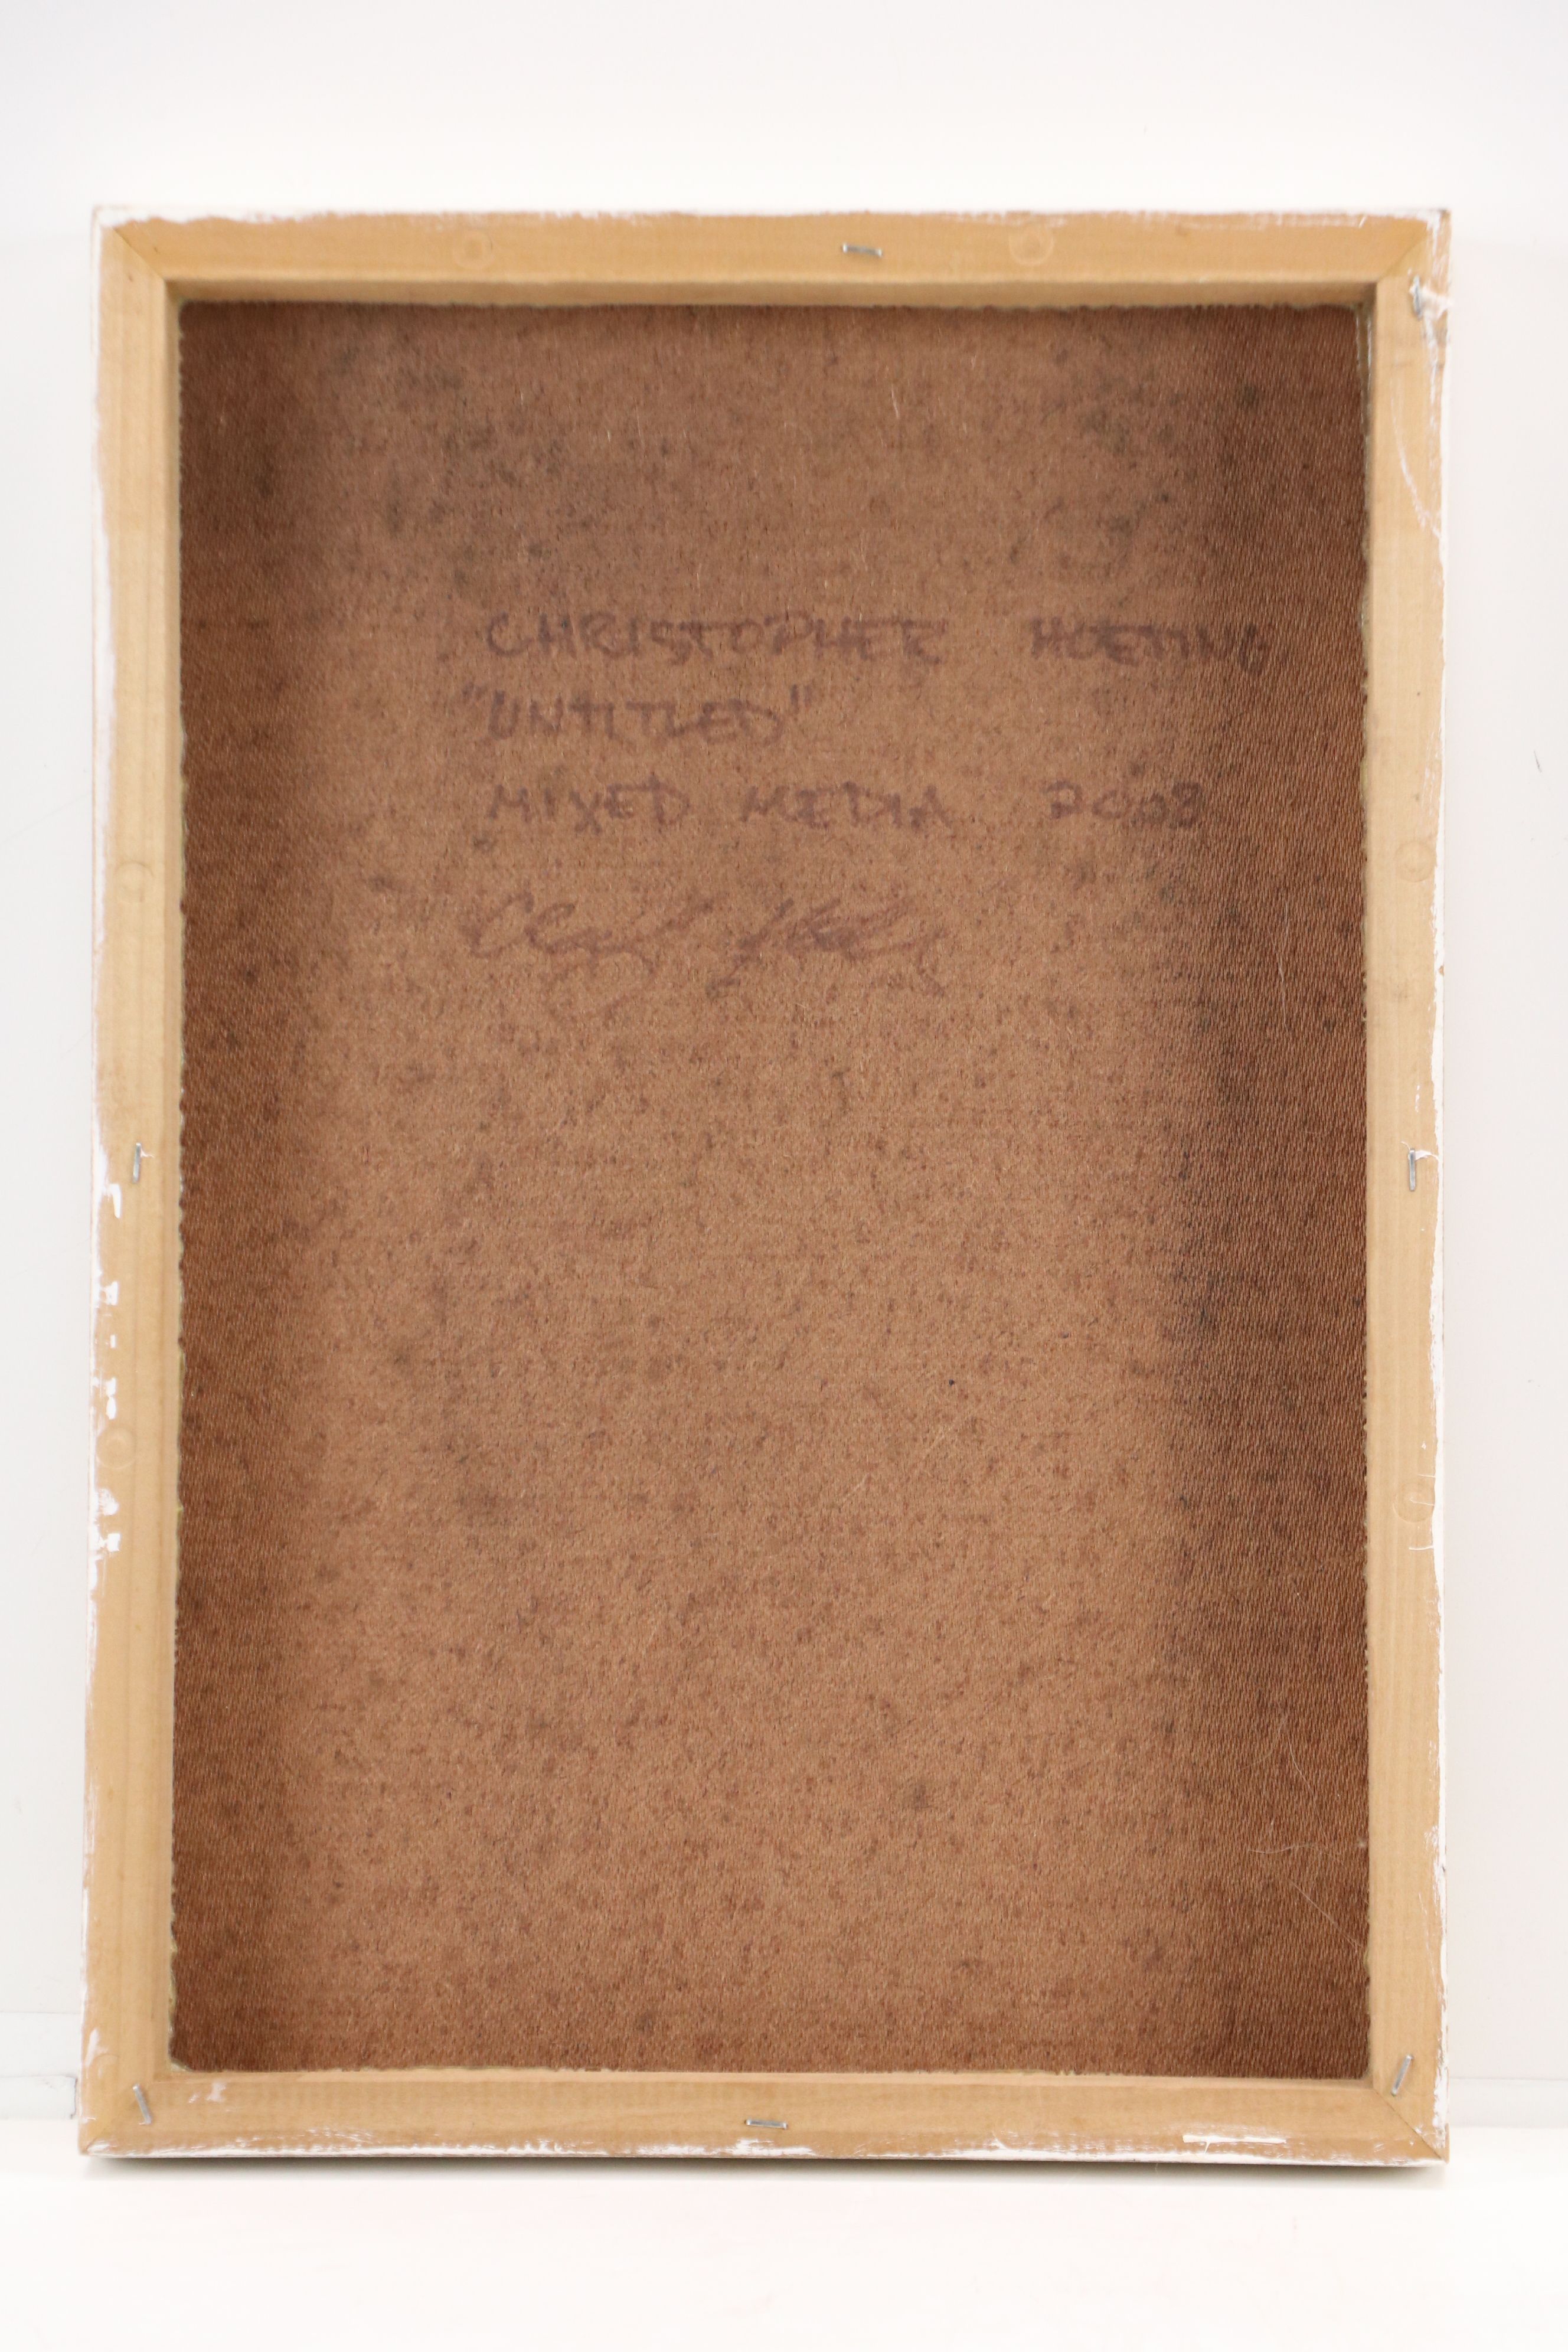 CHRISTOPHER HOETING
"UNTITLED"
MIXED MEDIA 2008